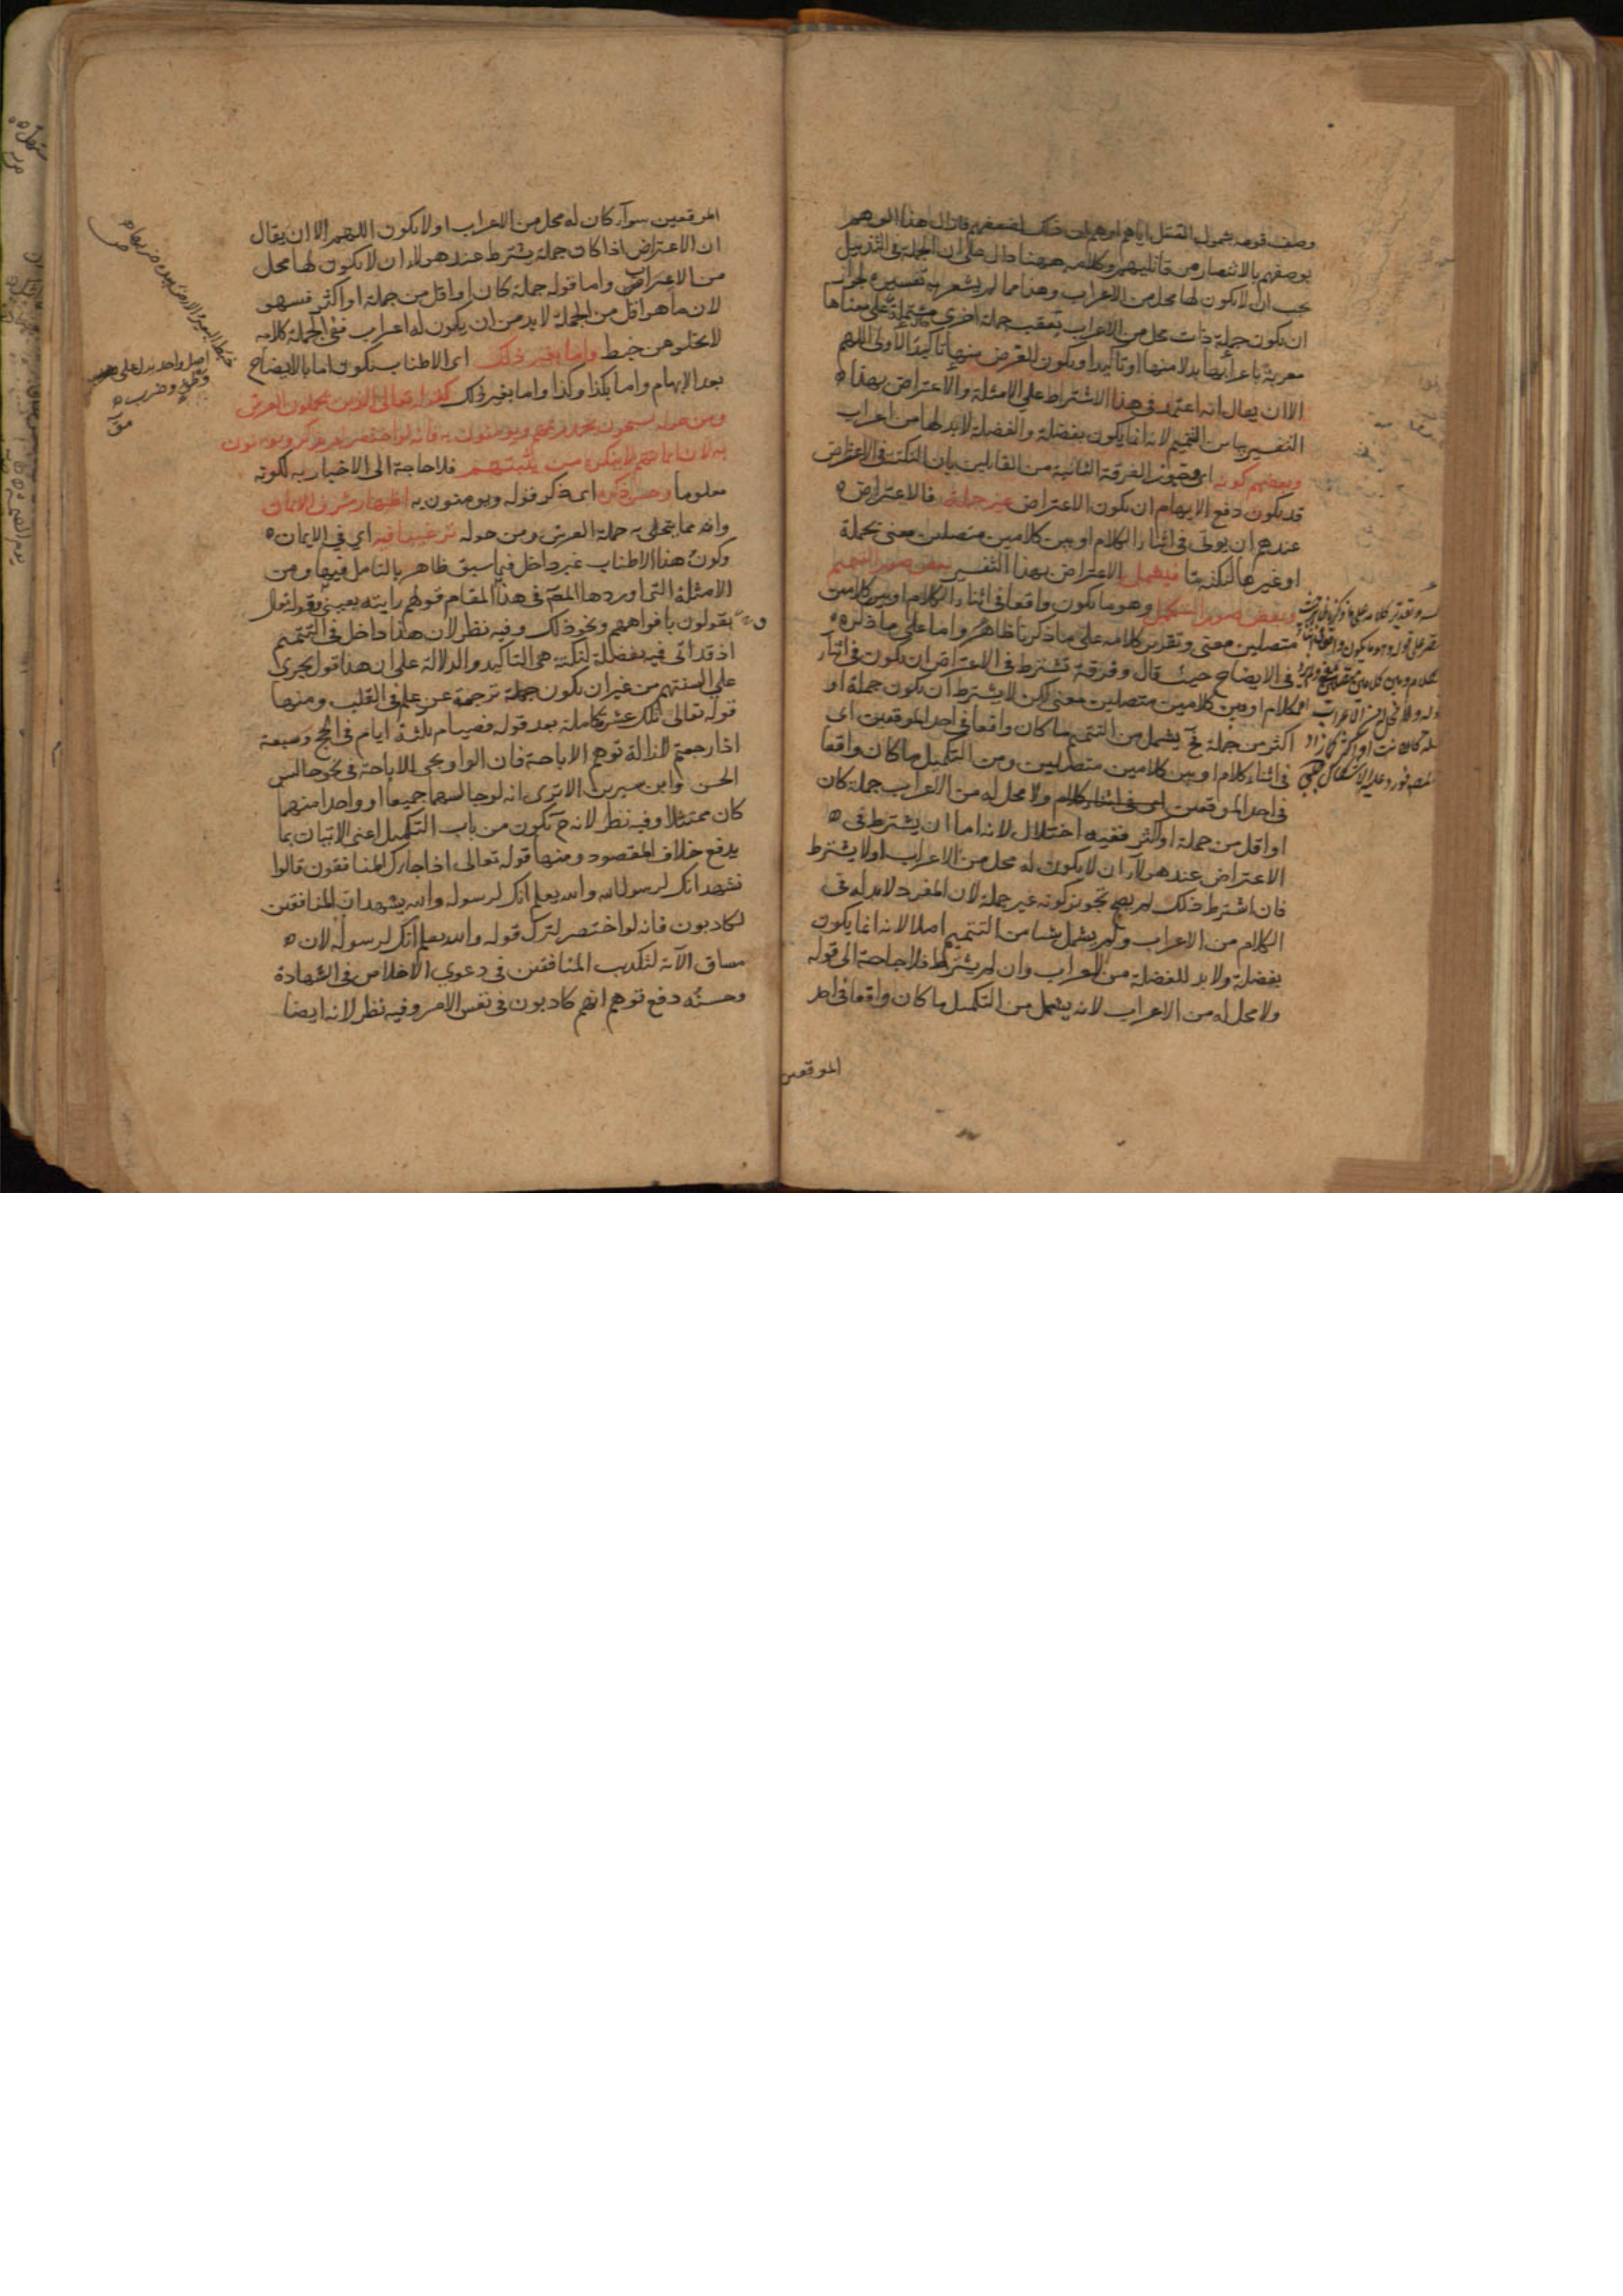 وصف قومه بشمول القتل اياهم اوهم ان ذلك لضعفهم فازال هذا الوهم
بوصفهم بالانتصار من قاتليهم وكلامه ههنا دال على ان الجملة في التذييل
يجب ان لا يكون لها محل من الاعراب وهذا مما لم يشعر به تفسيره لجواز
ان يكون جملة ذات محل من الاعراب تعقب جملة اخرى مشتملة على معناها
معربة باعرابها بدلا منها او تاكيدا ويكون الغرض منها تاكيد الاولى اللهم
الا ان يقال انه اعتمد في هذا الاشتراط على الامثلة والاعتراض بهذا
التفسير يباين التتميم لانه انما يكون بفضلة والفضلة لا بد لها من اعراب
وبعضهم كونه اى وجوز الفرقة الثانية من القايلين بان النكتة في الاعتراض
قد يكون دفع الايهام ان يكون الاعتراض غير جملة فالاعتراض
عندهم ان يوتى في اثناء الكلام او بين كلامين متصلين معنى بجملة
او غيرها لنكتة ما فيشمل الاعتراض بهذا التفسير بعض صور التتميم
وبعض صور التكميل وهو ما يكون واقعا في اثناء الكلام او بين كلامين
متصلين معنى وتقرير كلامه على ما ذكرنا ظاهر واما على ما ذكره
في الايضاح حيث قال وفرقة تشترط في الاعتراض ان يكون في اثناء
الكلام او بين كلامين متصلين معنى لكن لا يشترط ان يكون جملة او
اكثر من جملة فح يشمل من التتميم ما كان واقعا في احد الموقعين اى
في اثناء كلام او بين كلامين متصلين ومن التكميل ما كان واقعا
في احد الموقعين ولا محل له من الاعراب جملة كان
او اقل من جملة او اكثر ففيه اختلال لانه اما ان يشترط في
الاعتراض عند هولاء ان لا يكون له محل من الاعراب او لا يشترط
فان اشترط ذلك لم يصح تجويز كونه غير جملة لان المفرد لا بد له في
الكلام من الاعراب ولم يشمل شيا من التتميم اصلا لانه انما يكون
بفضلة ولا بد للفضلة من الاعراب وان لم يشترط فلا حاجة الى قوله
ولا محل له من الاعراب لانه يشمل من التكميل ما كان واقعا في احد
الموقعين
الموقعين سواء كان له محل من الاعراب او لا يكون اللهم الا ان يقال
ان الاعتراض اذا كان جملة يشترط عند هولاء ان لا يكون لها محل
من الاعراب واما قوله جملة كان او اقل من جملة او اكثر فسهو
لان ما هو اقل من الجملة لا بد من ان يكون له اعراب ففي الجملة كلامه
لا يخلو عن خبط واما بغير ذلك اى الاطناب يكون اما بالايضاح
بعد الابهام واما بكذا وكذا واما بغير ذلك كقوله تعالى الذين يحملون العرش
ومن حوله يسبحون بحمد ربهم ويومنون به فانه لو اختصر لم يذكر ويومنون
به لان ايمانهم لا ينكره من يثبتهم فلا حاجة الى الاخبار به لكونه
معلوما وحسن ذكره اى ذكر قوله ويومنون به اظهار شرف الايمان
وانه مما يتحلى به حملة العرش ومن حوله ترغيبا فيه اي في الايمان
وكون هذا الاطناب غير داخل فيما سبق ظاهر بالتامل فيها ومن
الامثلة التى اوردها المص في هذا المقام قولهم رايته بعيني وقوله تعالى
يقولون بافواههم ونحو ذلك وفيه نظر لان هذا داخل في التتميم
اذ قد اتى فيه بفضلة لنكتة هى التاكيد والدلالة على ان هذا قول يجرى
على السنتهم من غير ان يكون جملة ترجمة عن علم في القلب ومنها
قوله تعالى تلك عشرة كاملة بعد قوله فصيام ثلثة ايام في الحج وسبعة
اذا رجعتم لازالة توهم الاباحة فان الواو يجى للاباحة في نحو جالس
الحسن وابن سيرين الا ترى انه لو جالسهما جميعا او واحدا منهما
كان ممتثلا وفيه نظر لانه ح يكون من باب التكميل اعنى الاتيان بما
يدفع خلاف المقصود ومنها قوله تعالى اذا جاءك المنافقون قالوا
نشهد انك لرسول الله والله يعلم انك لرسوله والله يشهد ان المنافقين
لكاذبون فانه لو اختصر لترك قوله والله يعلم انك لرسوله لان
مساق الآية لتكذيب المنافقين في دعوى الاخلاص في الشهادة
وحسنه دفع توهم انهم كاذبون في نفس الامر وفيه نظر لانه ايضا